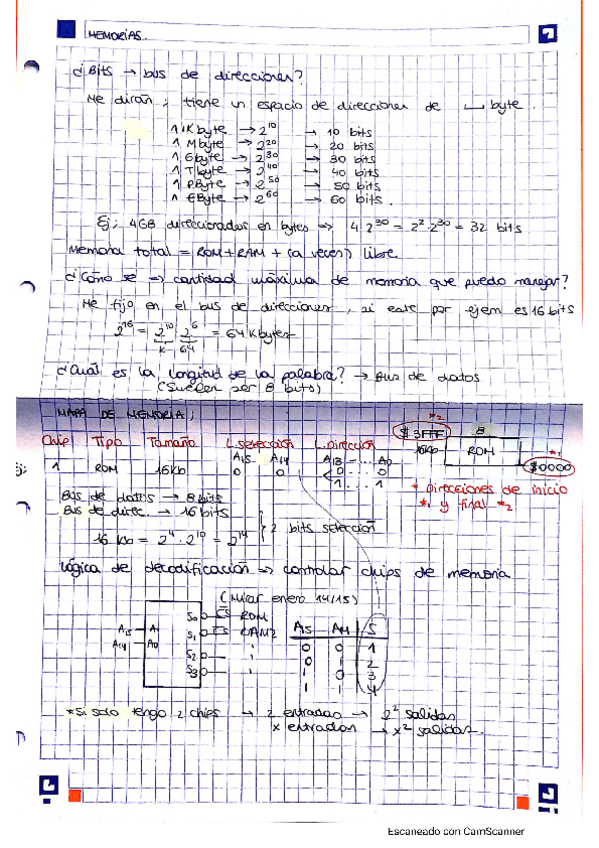 MEMORIAS.
¿Bits → bus de direcciones?
Me dirán ; tiene un espacio de direcciones de __ byte.
1 Kbyte → 2^10 → 10 bits
1 Mbyte → 2^20 → 20 bits
1 Gbyte → 2^30 → 30 bits
1 Tbyte → 2^40 → 40 bits
1 PByte → 2^50 → 50 bits
1 EByte → 2^60 → 60 bits.
Ej; 4GB direccionados en bytes => 4·2^30 = 2^2·2^30 = 32 bits
Memoria total = ROM + RAM + (a veces) libre
¿Cómo se => cantidad máxima de memoria que puedo manejar?
Me fijo en el bus de direcciones, si este por ejem es 16 bits
2^16 = 2^10 · 2^6 = 64 Kbytes
K 64
¿Cuál es la longitud de la palabra? → Bus de datos
(Suelen ser 8 bits)
MAPA DE MEMORIA;
*2
$3FFF 8
Chip Tipo Tamaño L.selección L.dirección
16Kb ROM
A15 A14 A13 - ... A0
*1
$0000
Ej: 1 ROM 16Kb 0 0 < 0 . . . 0
1 . . . 1
* Direcciones de inicio
*1 y final *2
Bus de datos → 8 bits
Bus de direc. → 16 bits
16 Kb = 2^4 · 2^10 = 2^14
2 bits selección
Lógica de decodificación => controlar chips de memoria
(Mirar enero 14/15)
S0 CS ROM
A15 A1 S1 CS RAM?
A14 A0 S2
S3
A15 A14 S
0 0 1
0 1 2
1 0 3
1 1 4
*Si solo tengo 2 chips → 2 entradas → 2^2 salidas
x entradas → x^2 salidas.
Escaneado con CamScanner